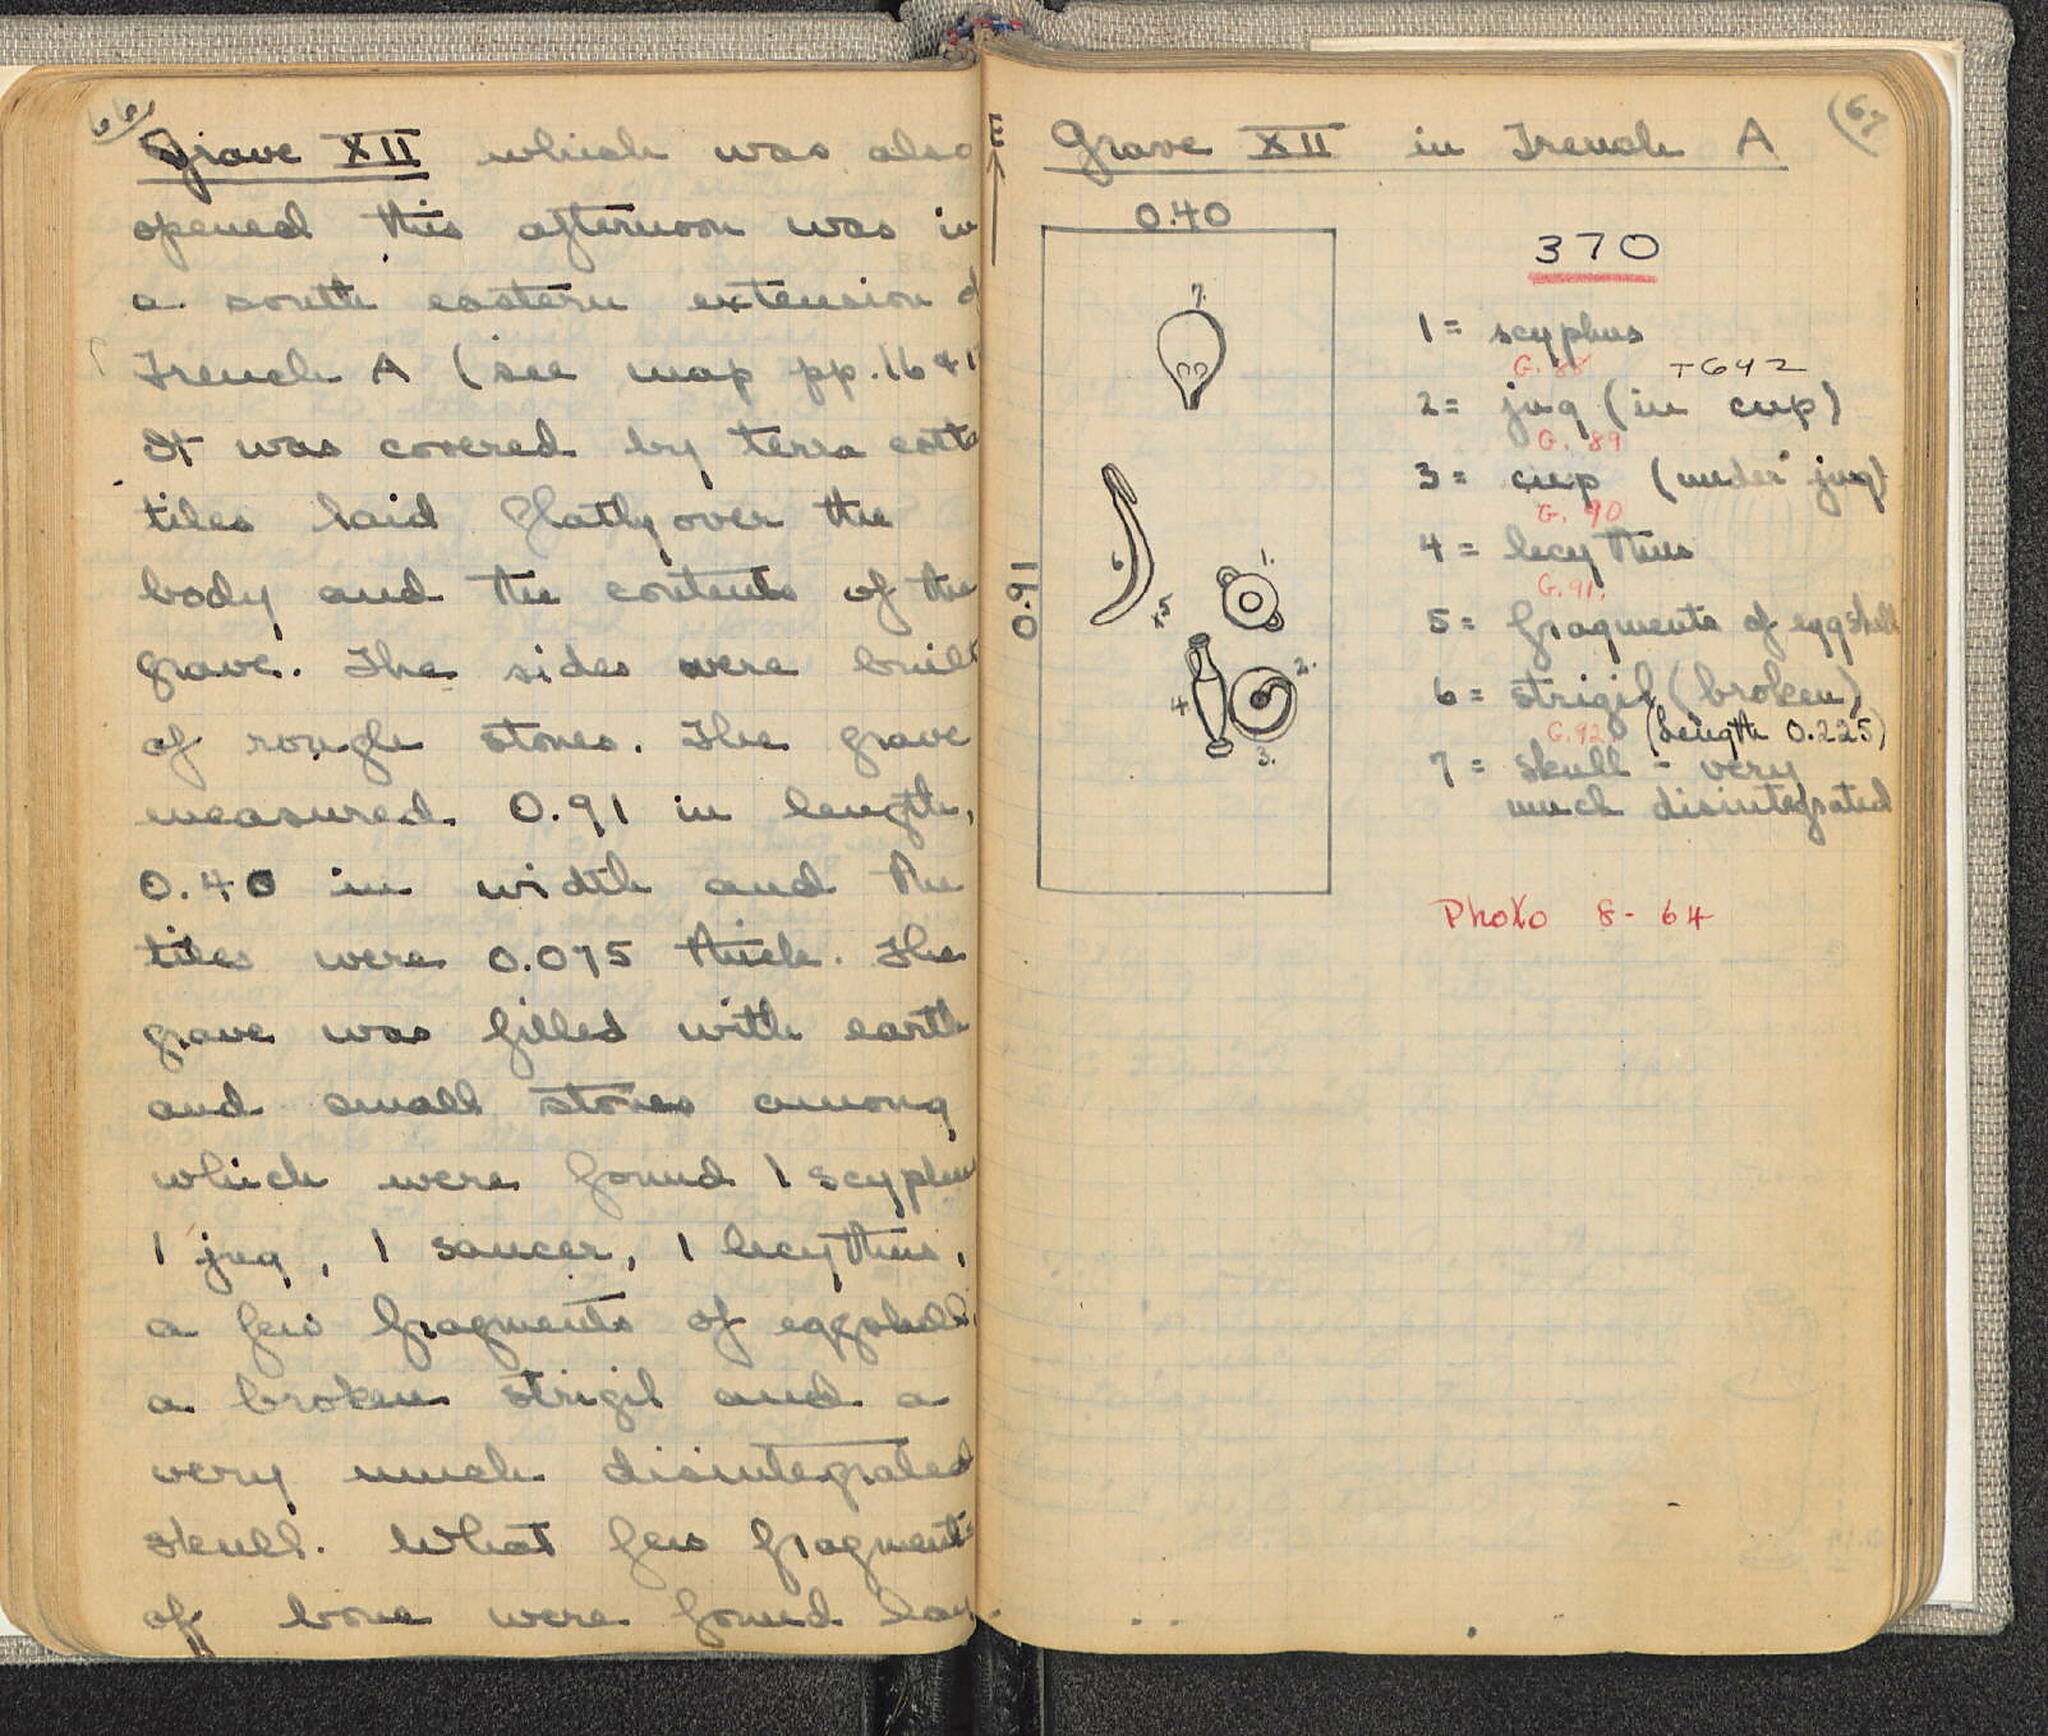 66
Grave XII which was also
opened this afternoon was in
a south eastern extension of
Trench A (see map pp. 16 & 1
It was covered by terra cotta
tiles laid flatly over the
body and the contents of the
grave. The sides were built
of rough stones. The grave
measured 0.91 in length,
0.40 in width and the
tiles were 0.075 thick. The
grave was filled with earth
and small stones among
which were found 1 scyphus
1 jug, 1 saucer, 1 lecythus,
a few fragments of eggshell,
a broken strigil and a
very much disintegrated
skull. What few fragments
of bone were found lay
(67
E
Grave XII in Trench A
0.40
0.91
7.
6
.5
1.
2.
4
3.
370
1 = scyphus
G. 88 T642
2 = jug (in cup)
G. 89
3 = cup (under jug)
G. 90
4 = lecythus
G. 91.
5 = fragments of eggshell
6 = strigil (broken)
G. 92. (length 0.225)
7 = skull - very
much disintegrated
Photo 8-64